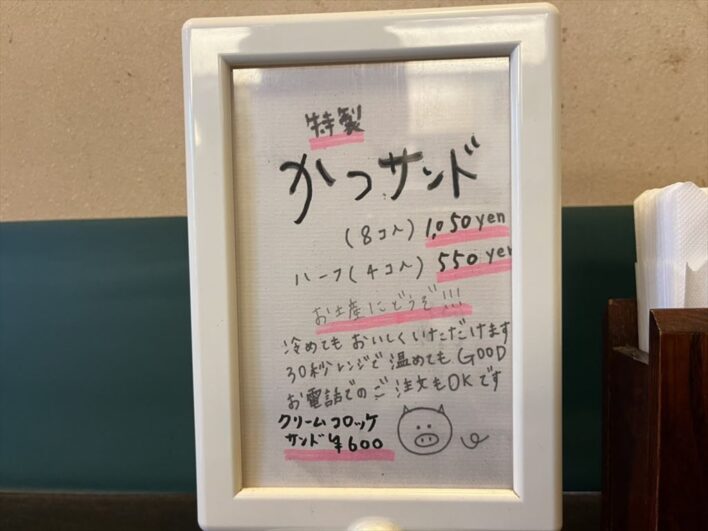 特製
かつサンド
(8コ入) 1,050yen
ハーフ(4コ入) 550yen
お土産にどうぞ!!!
冷めてもおいしくいただけます
30秒レンジで温めてもGOOD
お電話でのご注文もOKです
クリームコロッケ
サンド¥600